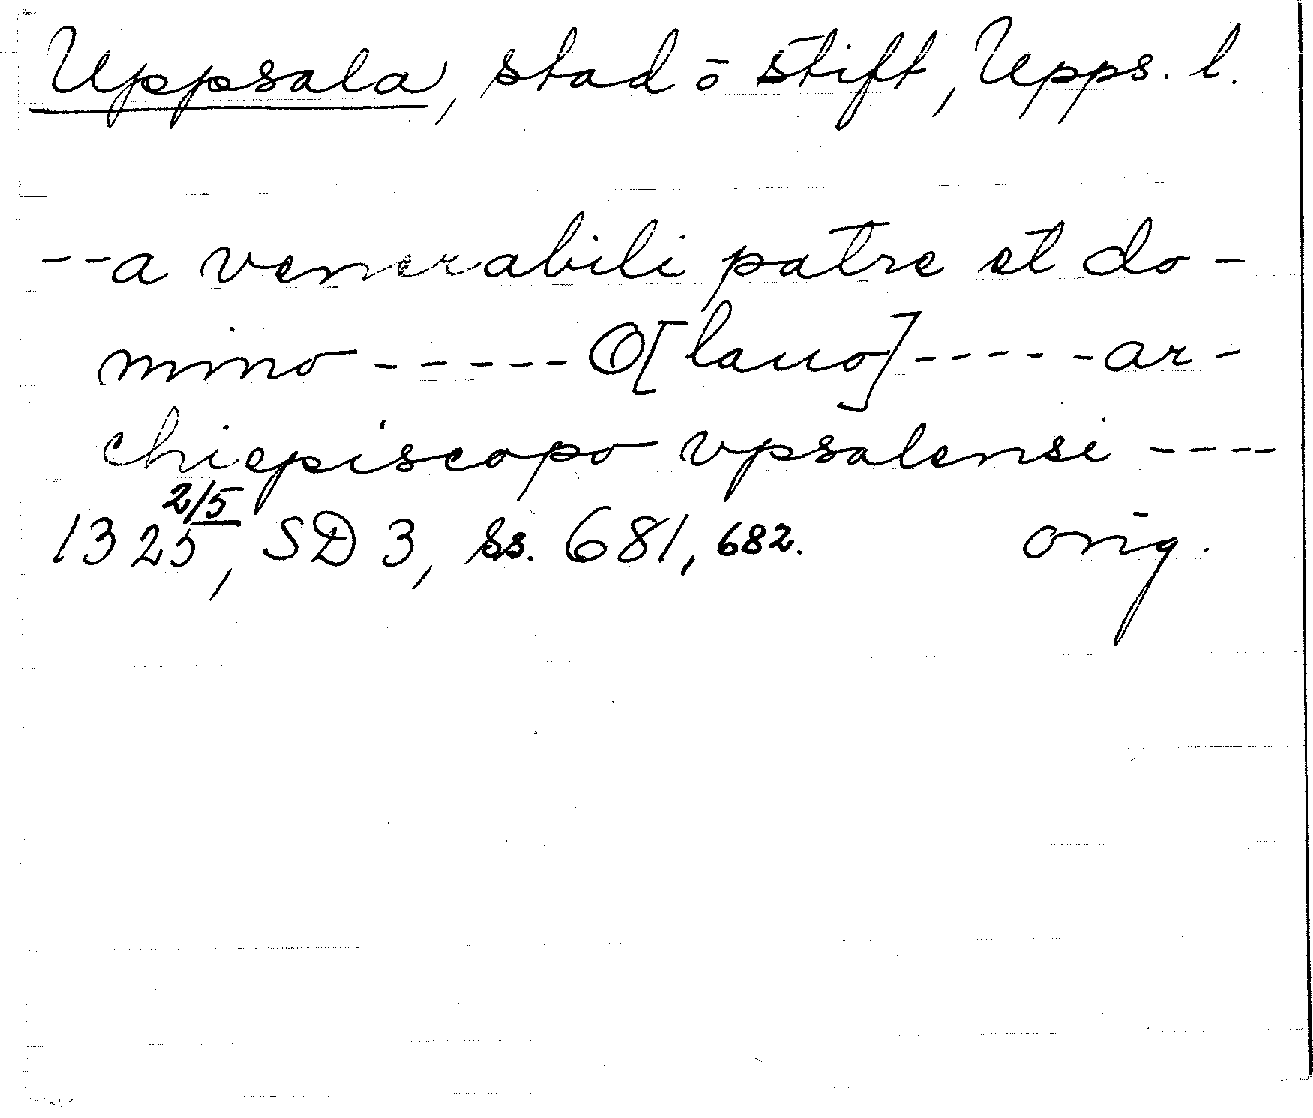 Uppsala, stad o stift, Upps. l.
--a venerabili patre et do-
mino ----- O[lauo] ----- ar-
chiepiscopo vpsalensi ----
1325 2/5, SD 3, ss. 681, 682. orig.